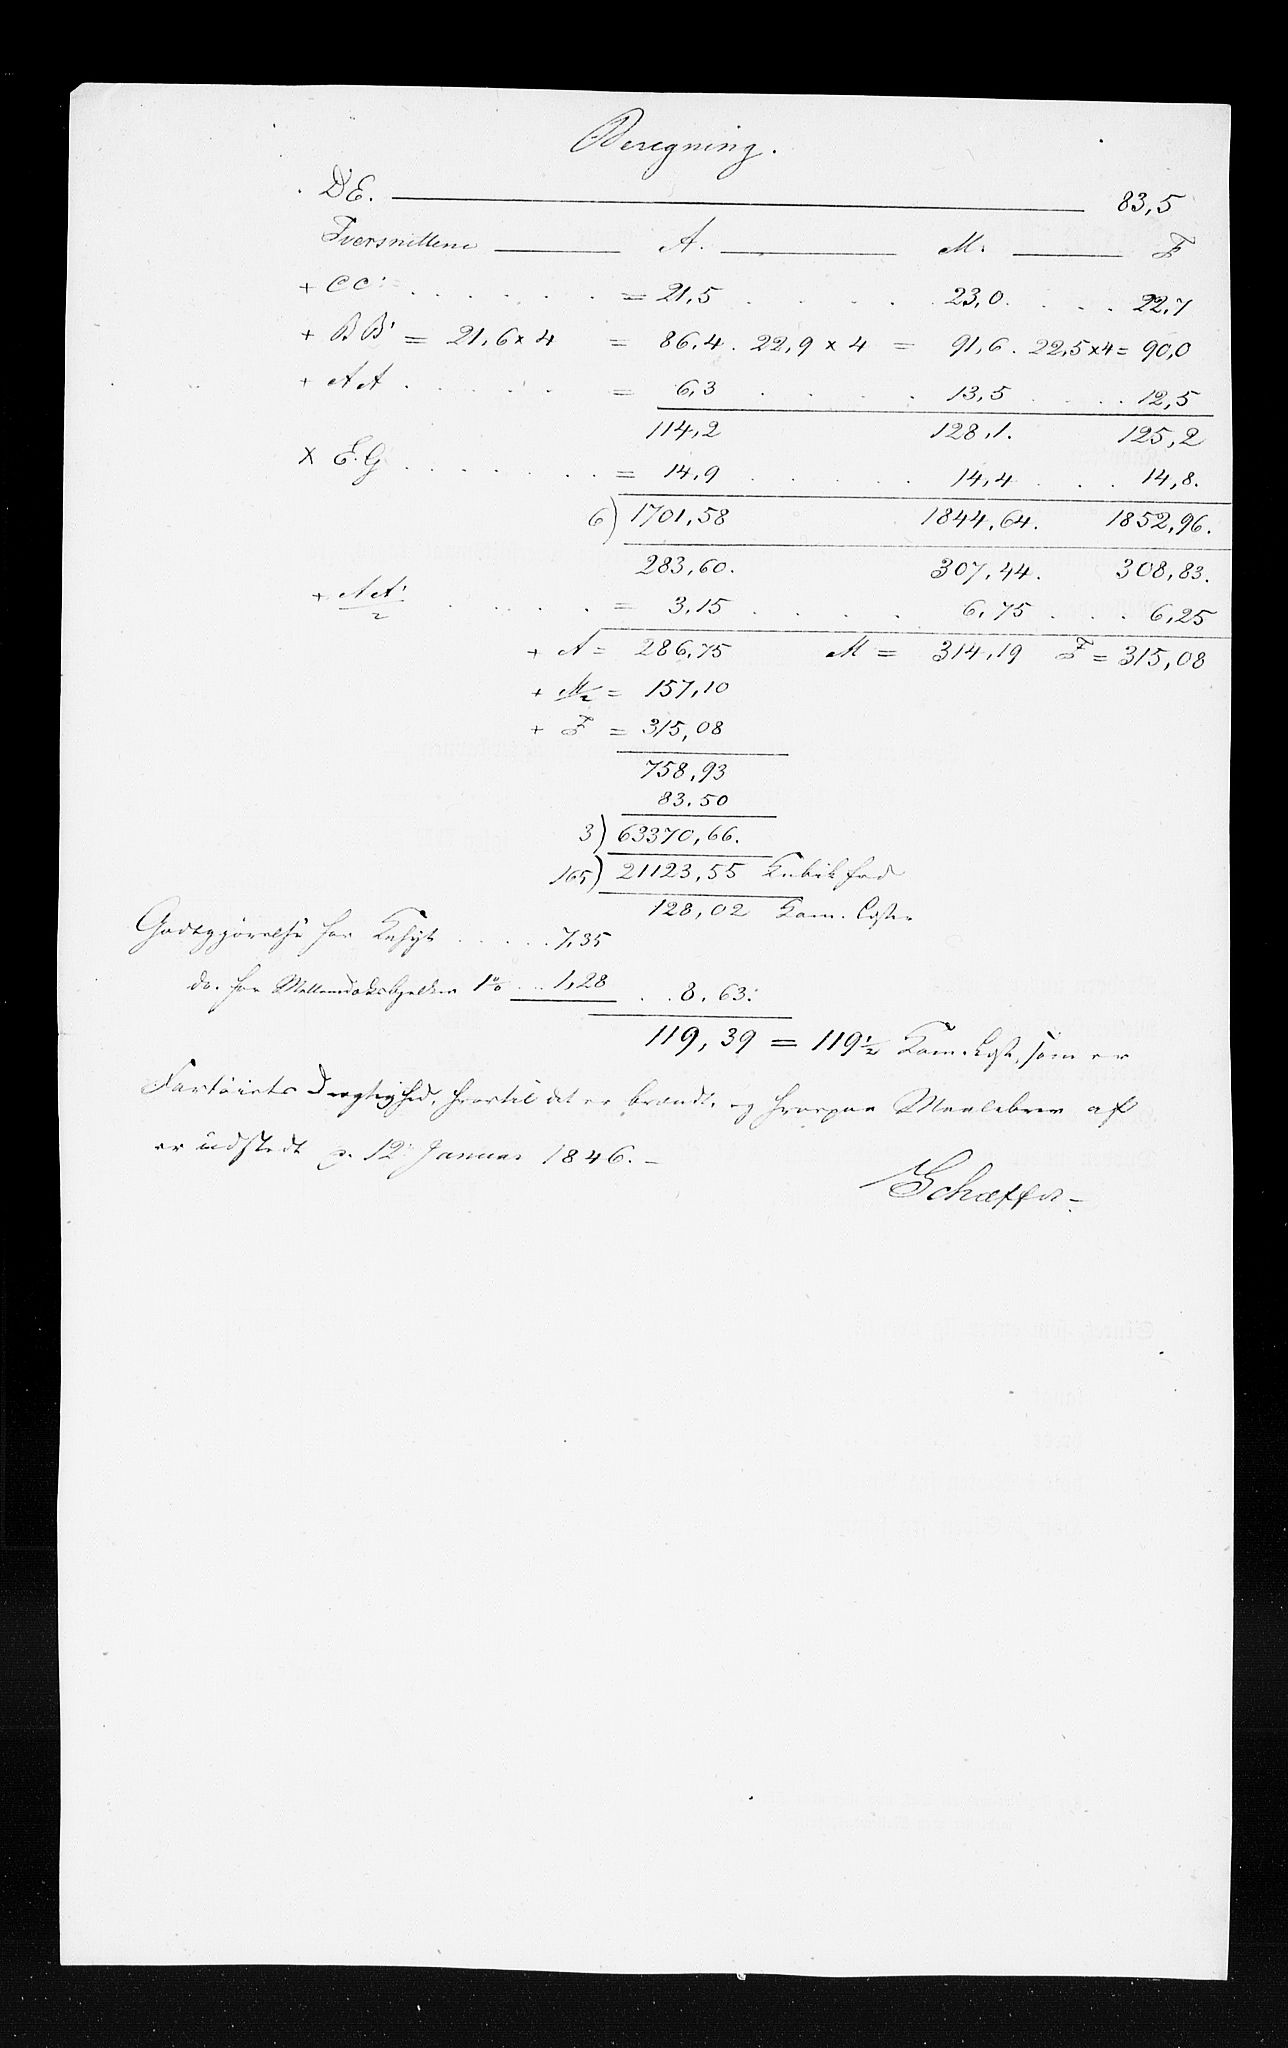 Beregning.
DE. 83,5
Tversnittene A. M. F
+ CC' = 21,5 . . . . 23,0. . . . 22,7
+ BB' = 21,6 × 4 = 86,4. 22,9 × 4 = 91,6. 22,5×4 = 90,0
+ AA' . . . . = 6,3 . . . . 13,5 . . . . 12,5
114,2 128,1. 125,2
× E.G . . . . . . = 14,9 . . . . 14,4 . . . 14,8.
6) 1701,58 1844,64. 1852,96.
283,60. 307,44. 308,83.
+ AA'/2 . . . . . = 3,15 . . . . 6,75 . . . 6,25
+ A = 286,75 M = 314,19 F = 315,08
+ M/2 = 157,10
+ F = 315,08
758,93
83.50
3) 63370,66.
165) 21123,55 Kubikfod
128,02 Kom. Læster
Godtgjørelse for Kahyt . . . . . 7,35
do. for Mellemdæksbjelker 1% . . . 1,28 . . 8.63:
119,39 = 119 1/2 Kom. Læst, som er
Fartöiets Drægtighed, hvortil det er brændt, og hvorpaa Maalebrev af
er üdstedt d. 12 Januar 1846. –
Schæffer